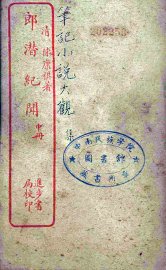 筆記小說大觀
集
202253
清 陳康祺著
郎潛紀聞
中冊
進步書
局校印
中南民族學院
圖書館
藏書